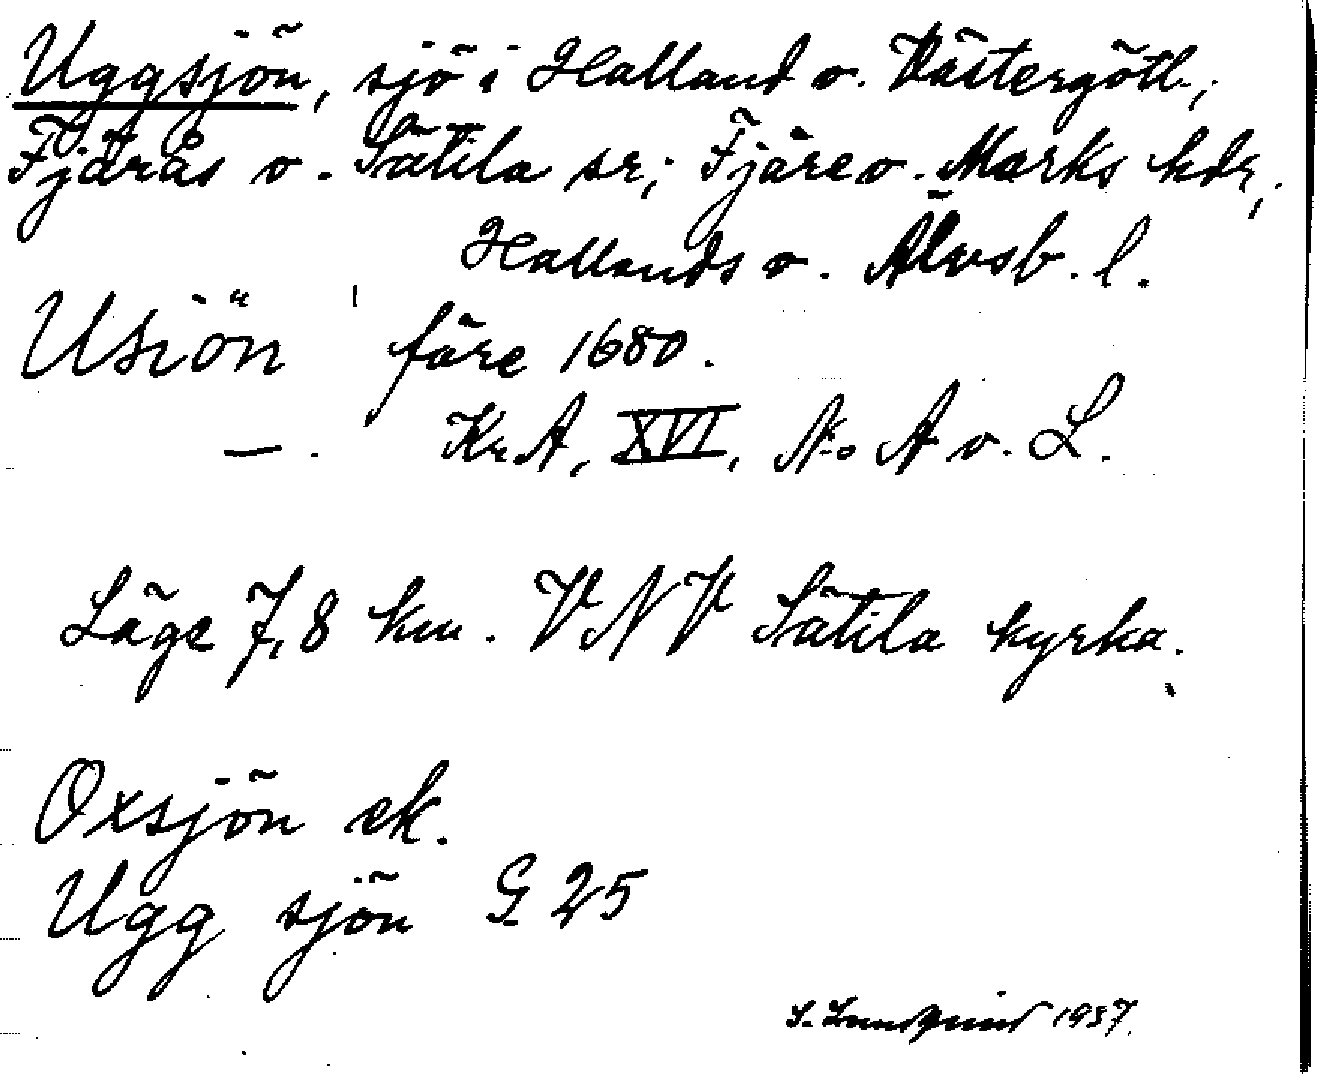 Uggsjön, sjö i Halland o. Västergötl.;
Fjärås o. Sätila sr; Fjäre o. Marks hdr,
Hallands o. Älvsb. l.
Usiön före 1680.
—. KrA, XVI, N:o A o. L.
Läge 7,8 km. VNV Sätila kyrka.
Oxsjön ek.
Ugg sjön G 25
S. Lundqvist 1937.